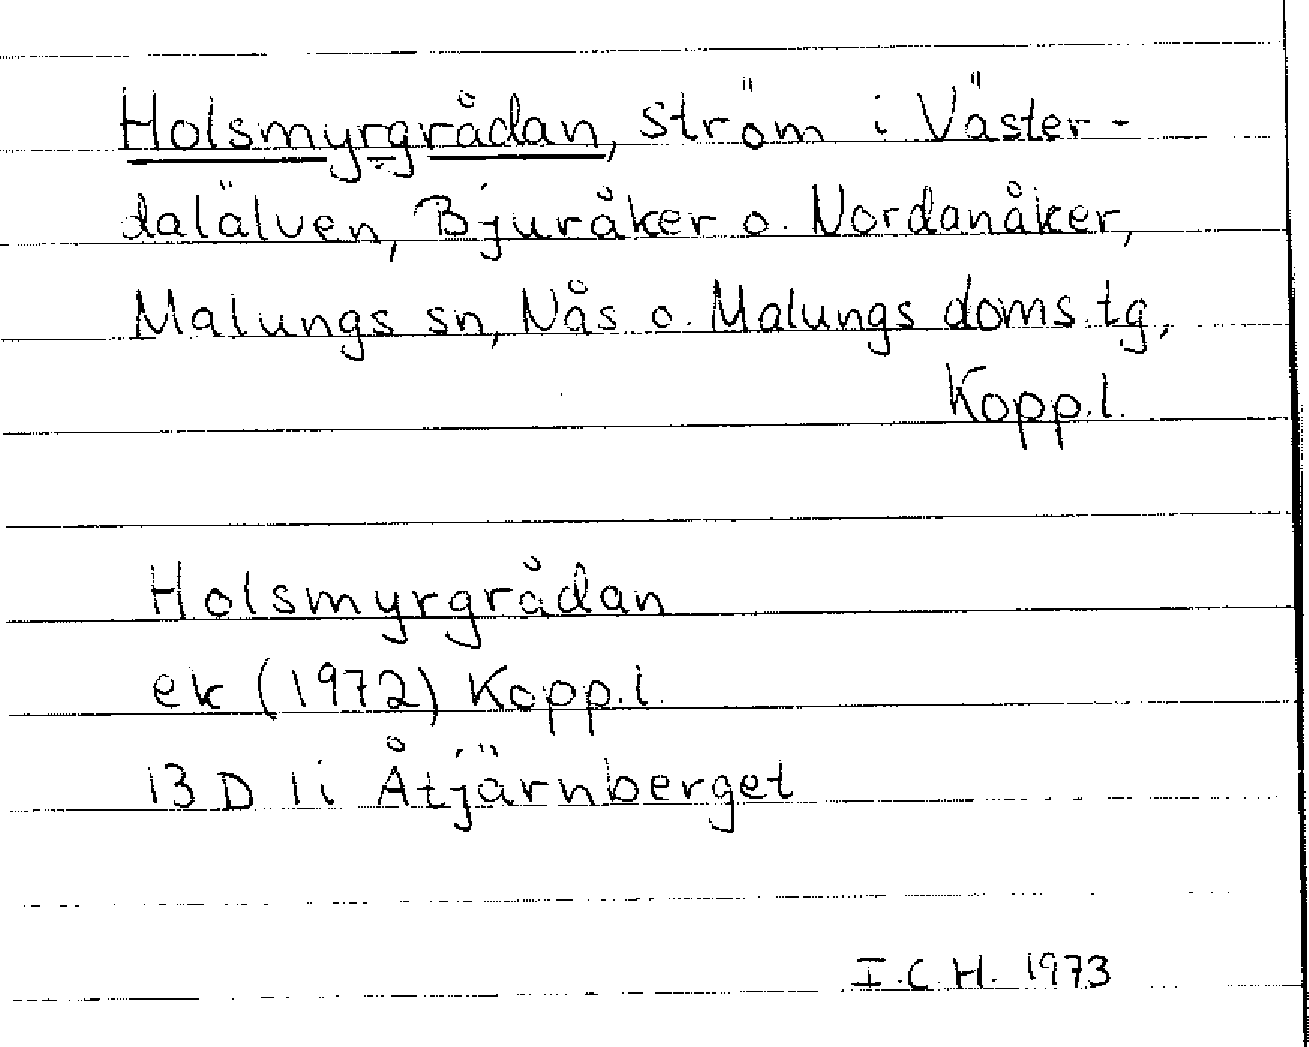 Holsmyrgrådan, ström i Väster-
dalälven, Bjuråker o. Nordanåker,
Malungs sn, Nås o. Malungs doms.tg,
Kopp.l.
Holsmyrgrådan
ek (1972) Kopp.l.
13 D 1i Åtjärnberget
I.C.H. 1973